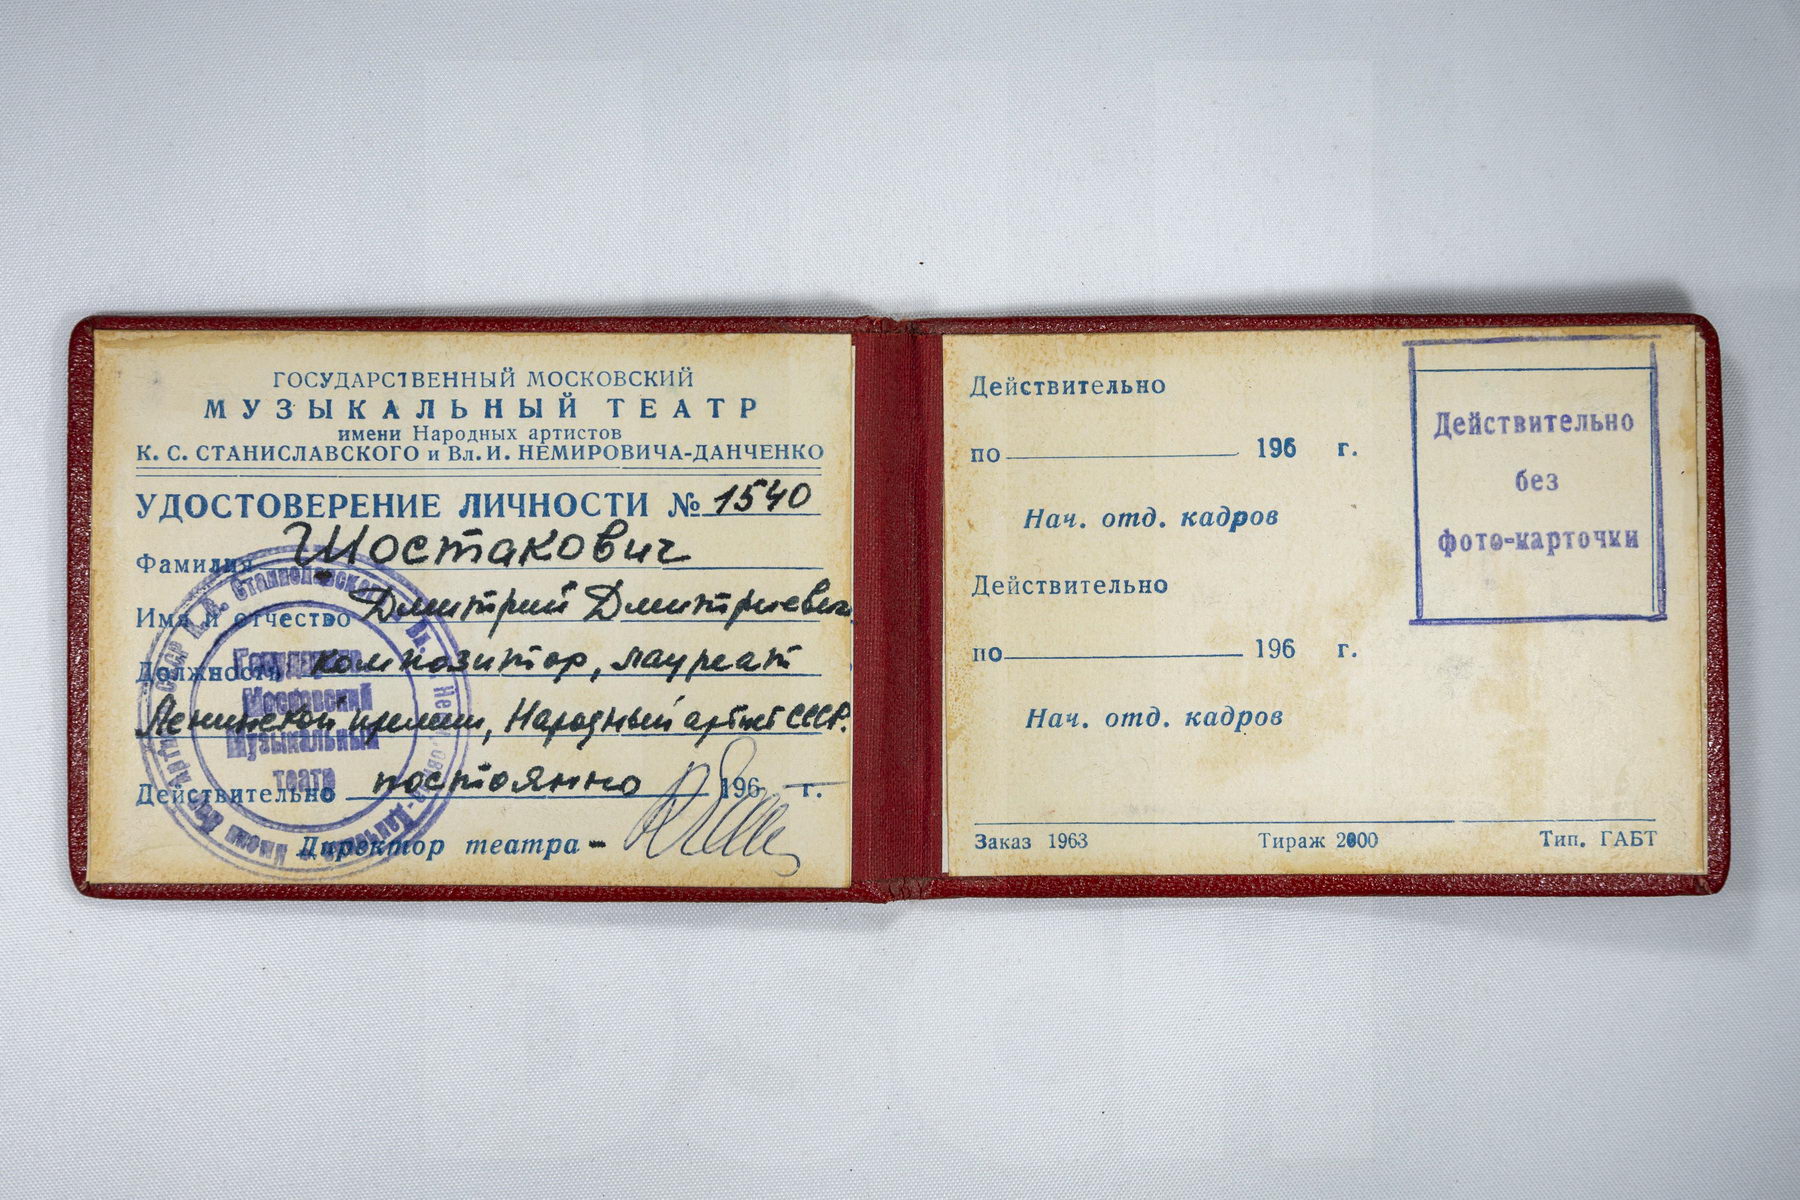 ГОСУДАРСТВЕННЫЙ МОСКОВСКИЙ
МУЗЫКАЛЬНЫЙ ТЕАТР
имени Народных артистов
К. С. СТАНИСЛАВСКОГО и Вл. И. НЕМИРОВИЧА-ДАНЧЕНКО
УДОСТОВЕРЕНИЕ ЛИЧНОСТИ № 1540
Фамилия Шостакович
Имя и отчество Дмитрий Дмитриевич
Должность композитор, лауреат
Ленинской премии, Народный артист СССР.
Действительно постоянно 196 г.
Директор театра -
Московский
Музыкальный
театр
Действительно
по 196 г.
Нач. отд. кадров
Действительно
по 196 г.
Нач. отд. кадров
Заказ 1963 Тираж 2000 Тип. ГАБТ
Действительно
без
фото-карточки